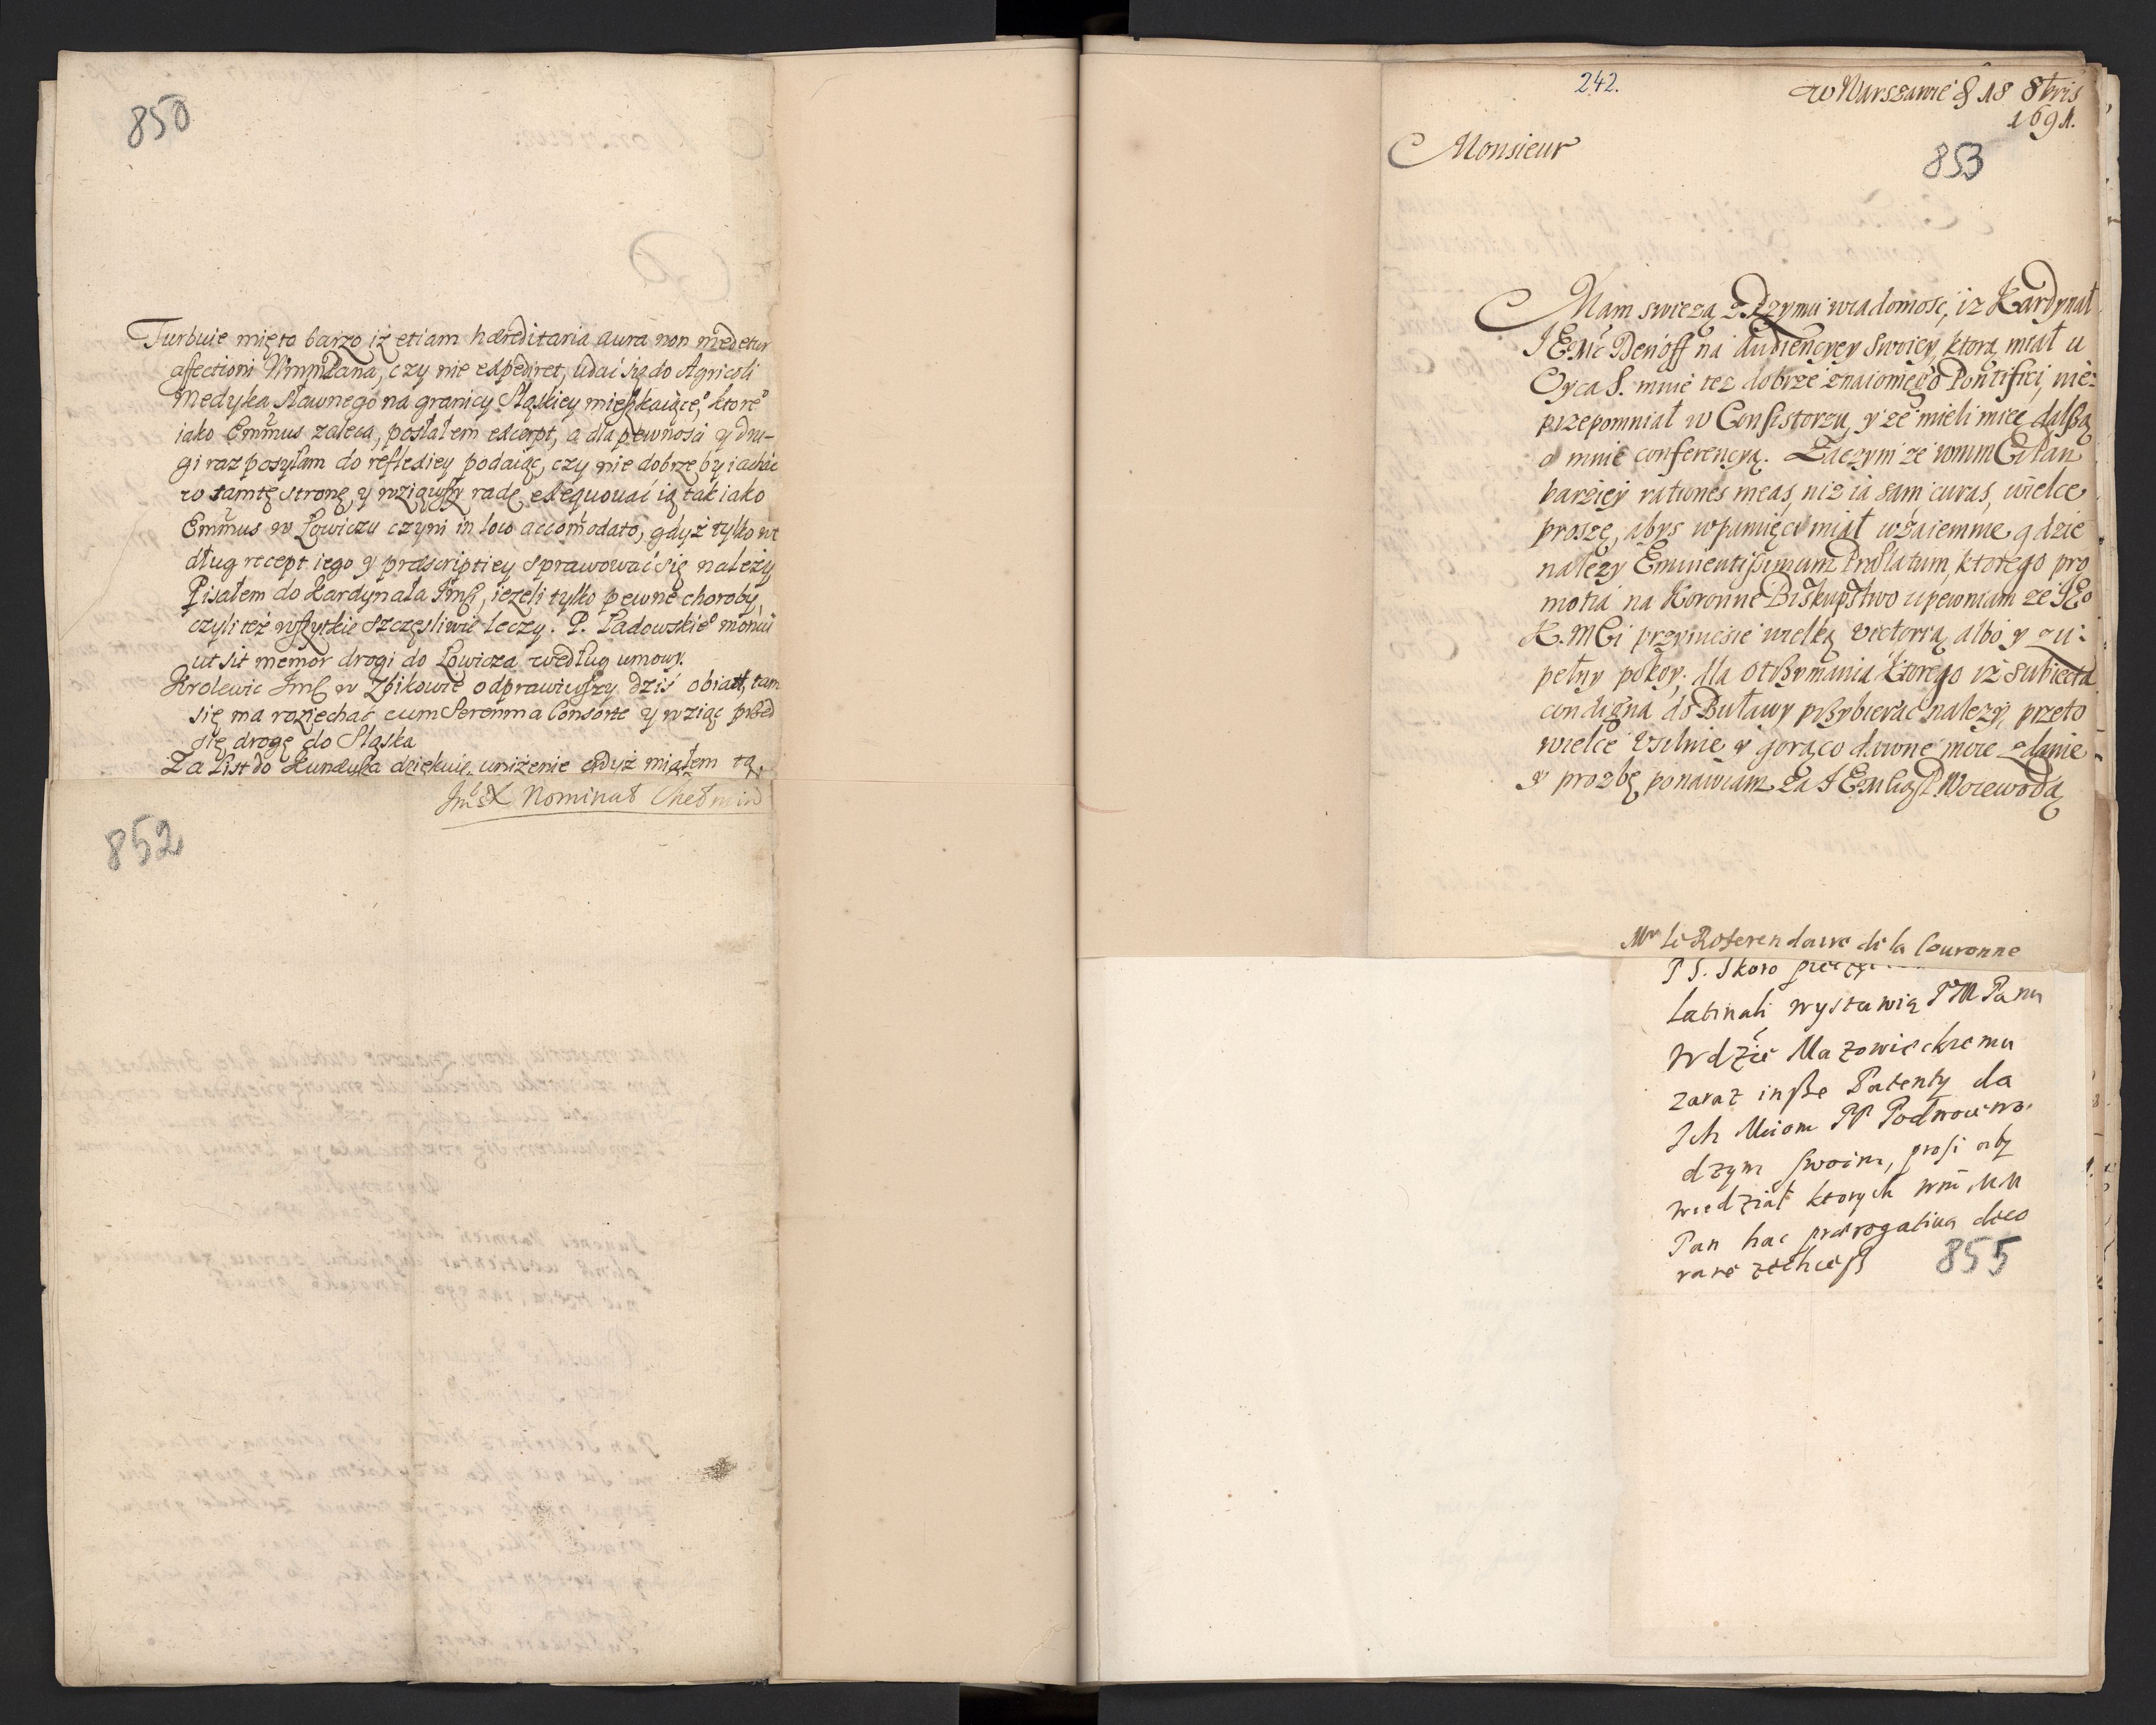 850
Turbuie mię to barzo iż etiam hæreditaria aura non medetur
affectioni Wmm Pana, czy nie expediret, udać się do Agricoli
Medyka sławnego na granicy Sląskiey mieszkaiące°, ktore°
iako Emmus zaleca, posłałem excerpt, a dla pewności y dru-
gi raz posyłam do reflexiey podaiąc, czy nie dobrze by iachać
w tamtę stronę, y wziąwszy radę exequować ią tak iako
Emmus w Łowiczu czyni in loco accomodato, gdyż tylko we
dług recept iego y præscriptiey sprawować się należy
Pisałem do Kardynała Jmści, ieżeli tylko pewne choroby,
czyli też wszytkie szczęsliwie leczy. P. Ładowskie° monui
ut sit memor drogi do Łowicza według umowy.
Krolewic Jmść w Zbikowie odprawiwszy dziś obiad, tam
się ma roziechać cum Serenma Consorte y wziąć przed
się drogę do Sląska
Za List do Kundusza dziękuię uniżenie gdyż miałem tą
Jmć X Nominat Chełmin
852
242.
w Warszawie d 18 8bris
1691.
Monsieur
853
Mam swieżą z Rzymu wiadomość, iż Kardynał
JEMć Denoff na Audiencyey swoiey, ktorą miał u
Oyca S. mnie tez dobrze znaiomego Pontifici, nie-
przepomniał w Consistorzu, y że mieli mieć dalszą
o mnie conferencyą. Zaczym że wmm Pan
barziey rationes meas, niż ia sam curas, wielce
proszę, abyś w pamięci miał wzaiemnie gdzie
należy Eminentissimum Prælatum, ktorego pro
motia na Koronne Biskupstwo upewniam że JKo
K. Mści przyniesie wielką victorią albo y zu-
pełny pokoy. dla otrzymania ktorego iż subiecta
condigna do Buławy przybierać należy, przeto
wielce usilnie y gorąco dawne moie zdanie
y prozbę ponawiam za JEMcią P. Woiewodą
Mr le Referendaire de la Couronne
P S. Skoro
Latinali wystawią PM Panu
Wdzie Mazowieckiemu
zaraz insze Patenty da
Ich Mciom PP Podwoiewo-
dzym swoim, prosi aby
wiedział ktorych wm MM
Pan hac prærogativa deco
rare zechcesz
855